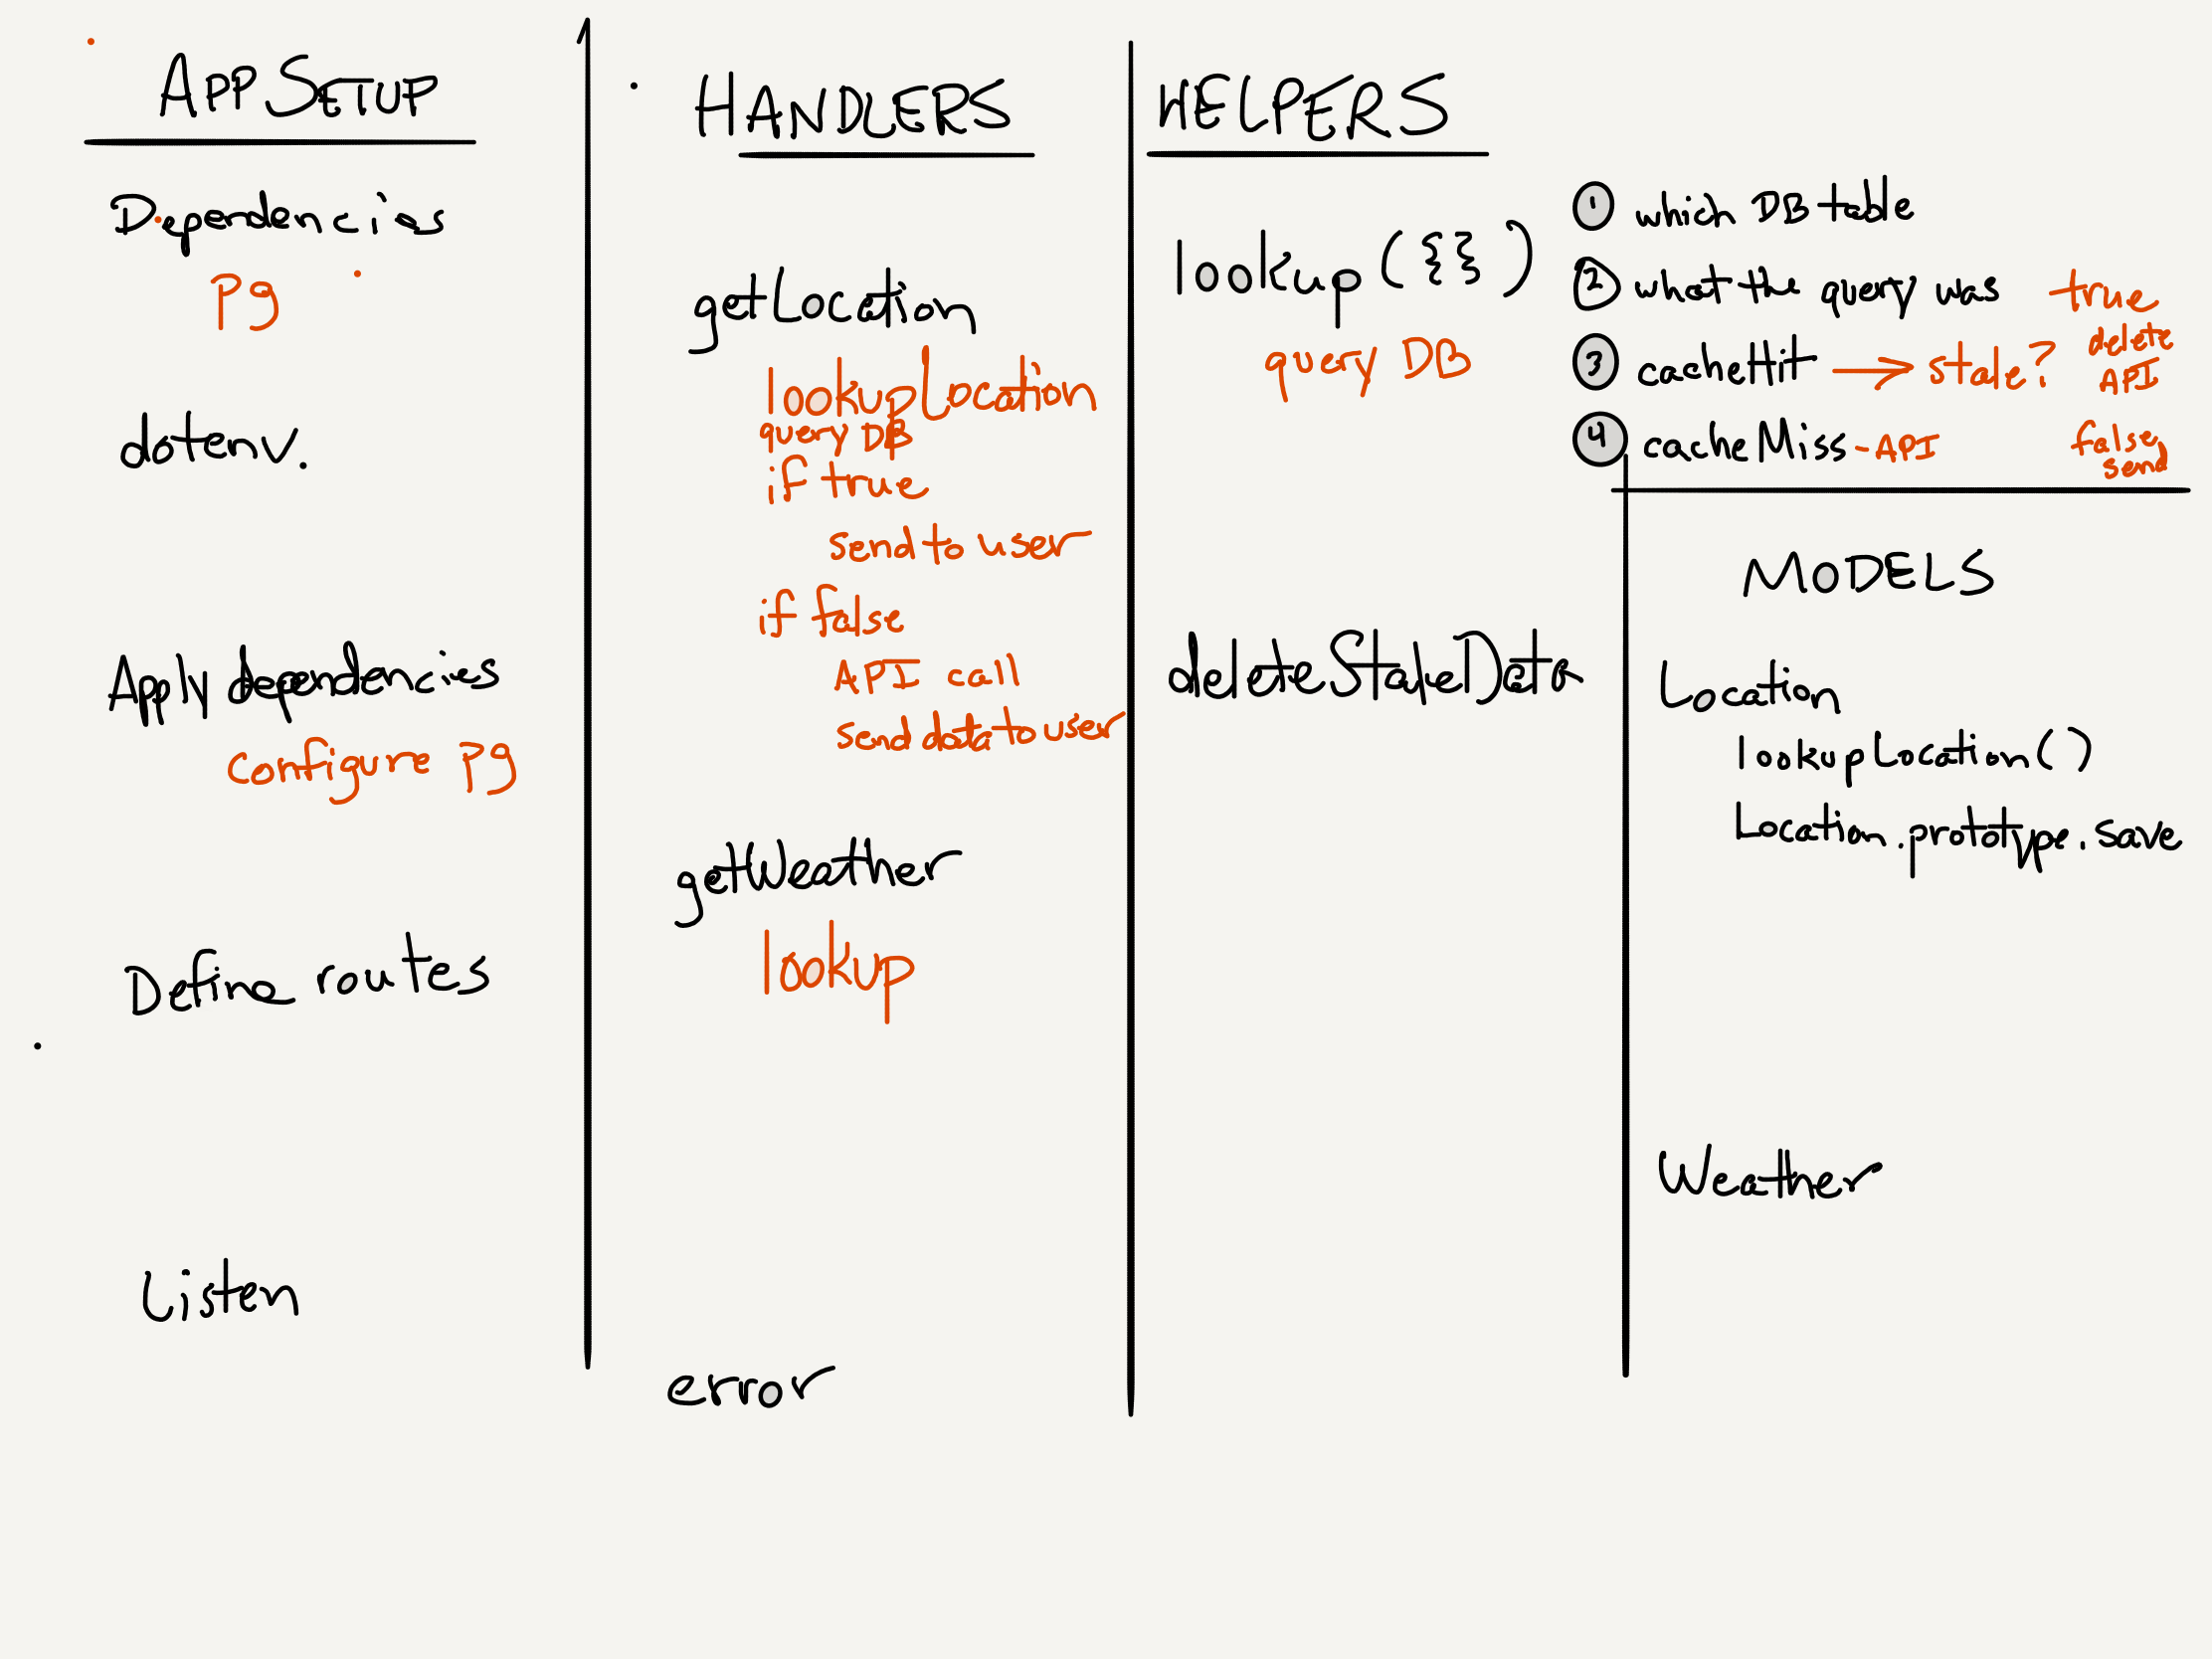 APP SETUP
Dependencies
pg
dotenv.
Apply dependencies
configure pg
Define routes
Listen
HANDLERS
getLocation
lookupLocation
query DB
if true
send to user
if false
API call
send data to user
getWeather
lookup
error
HELPERS
lookup({ })
query DB
deleteStaleData
1 which DB table
2 what the query was
3 cacheHit → stale?
true
delete
API
4 cacheMiss - API
false
send
MODELS
Location
lookupLocation()
Location.prototype.save
Weather